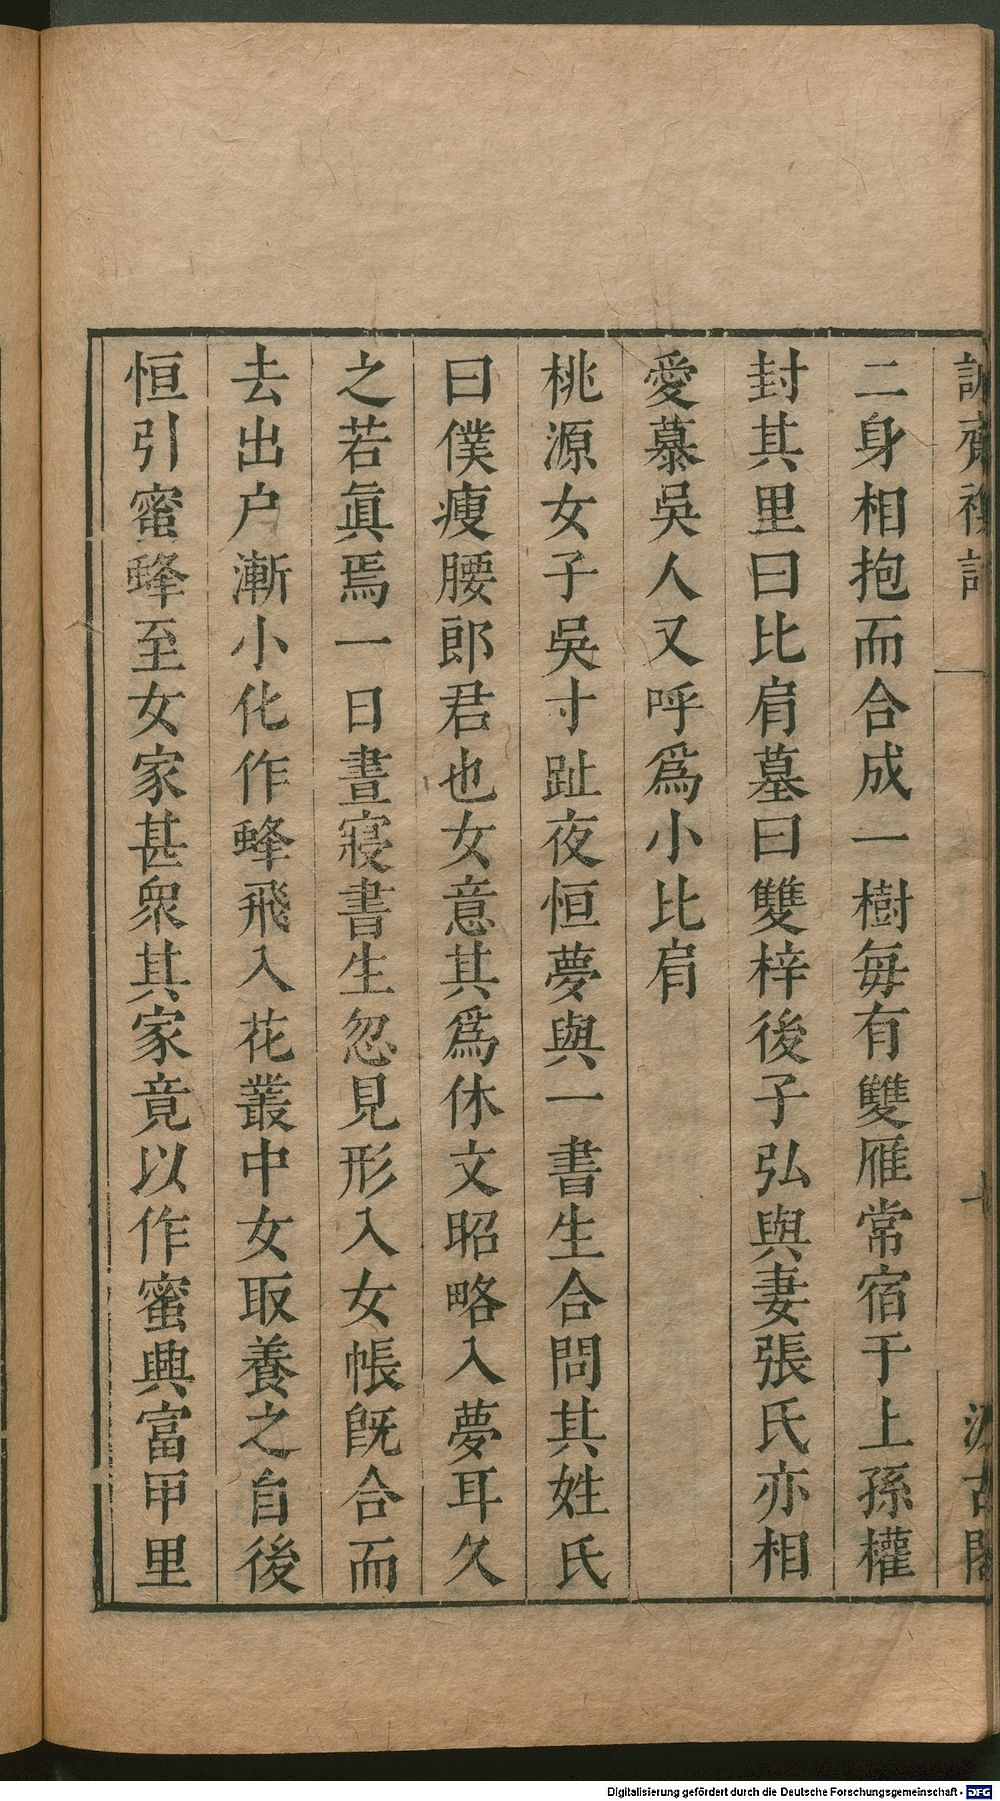 二身相抱而合成一樹每有雙雁常宿于上孫權
封其里曰比肩墓曰雙梓後子弘與妻張氏亦相
愛慕吳人又呼爲小比肩
桃源女子吳寸趾夜恒夢與一書生合問其姓氏
曰僕瘦腰郎君也女意其爲休文昭略入夢耳久
之若眞焉一日晝寢書生忽見形入女帳旣合而
去出户漸小化作蜂飛入花叢中女取養之自後
恒引蜜蜂至女家甚衆其家竟以作蜜興富甲里
Digitalisierung gefördert durch die Deutsche Forschungsgemeinschaft - DFG